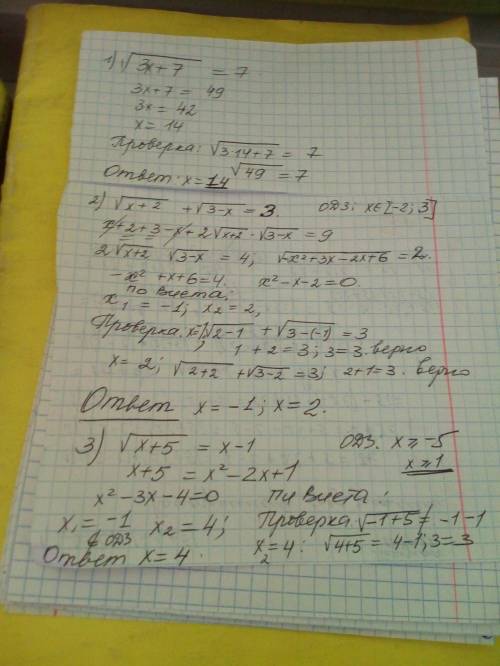 1) √3x+7 = 7
3x+7 = 49
3x = 42
x = 14
Проверка: √3·14+7 = 7
√49 = 7
Ответ: x=14
2) √x+2 + √3-x = 3. ОДЗ: x∈[-2; 3]
x+2+3-x+2√x+2 · √3-x = 9
2√x+2 √3-x = 4; √-x²+3x-2x+6 = 2.
-x²+x+6=4. x²-x-2=0.
по Виета;
x₁ = -1; x₂ = 2;
Проверка: x=-1; √2-1 + √3-(-1) = 3
1+2=3; 3=3. верно
x= 2; √2+2 + √3-2 = 3; 2+1=3. верно
Ответ x=-1; x=2.
3) √x+5 = x-1 ОДЗ: x ⩾ -5
x+5 = x²-2x+1 x ⩾ 1
x²-3x-4=0 по Виета:
x₁ = -1 x₂ = 4; Проверка √-1+5 ≠ -1-1
∉ ОДЗ x₂=4: √4+5 = 4-1; 3=3
Ответ x=4.